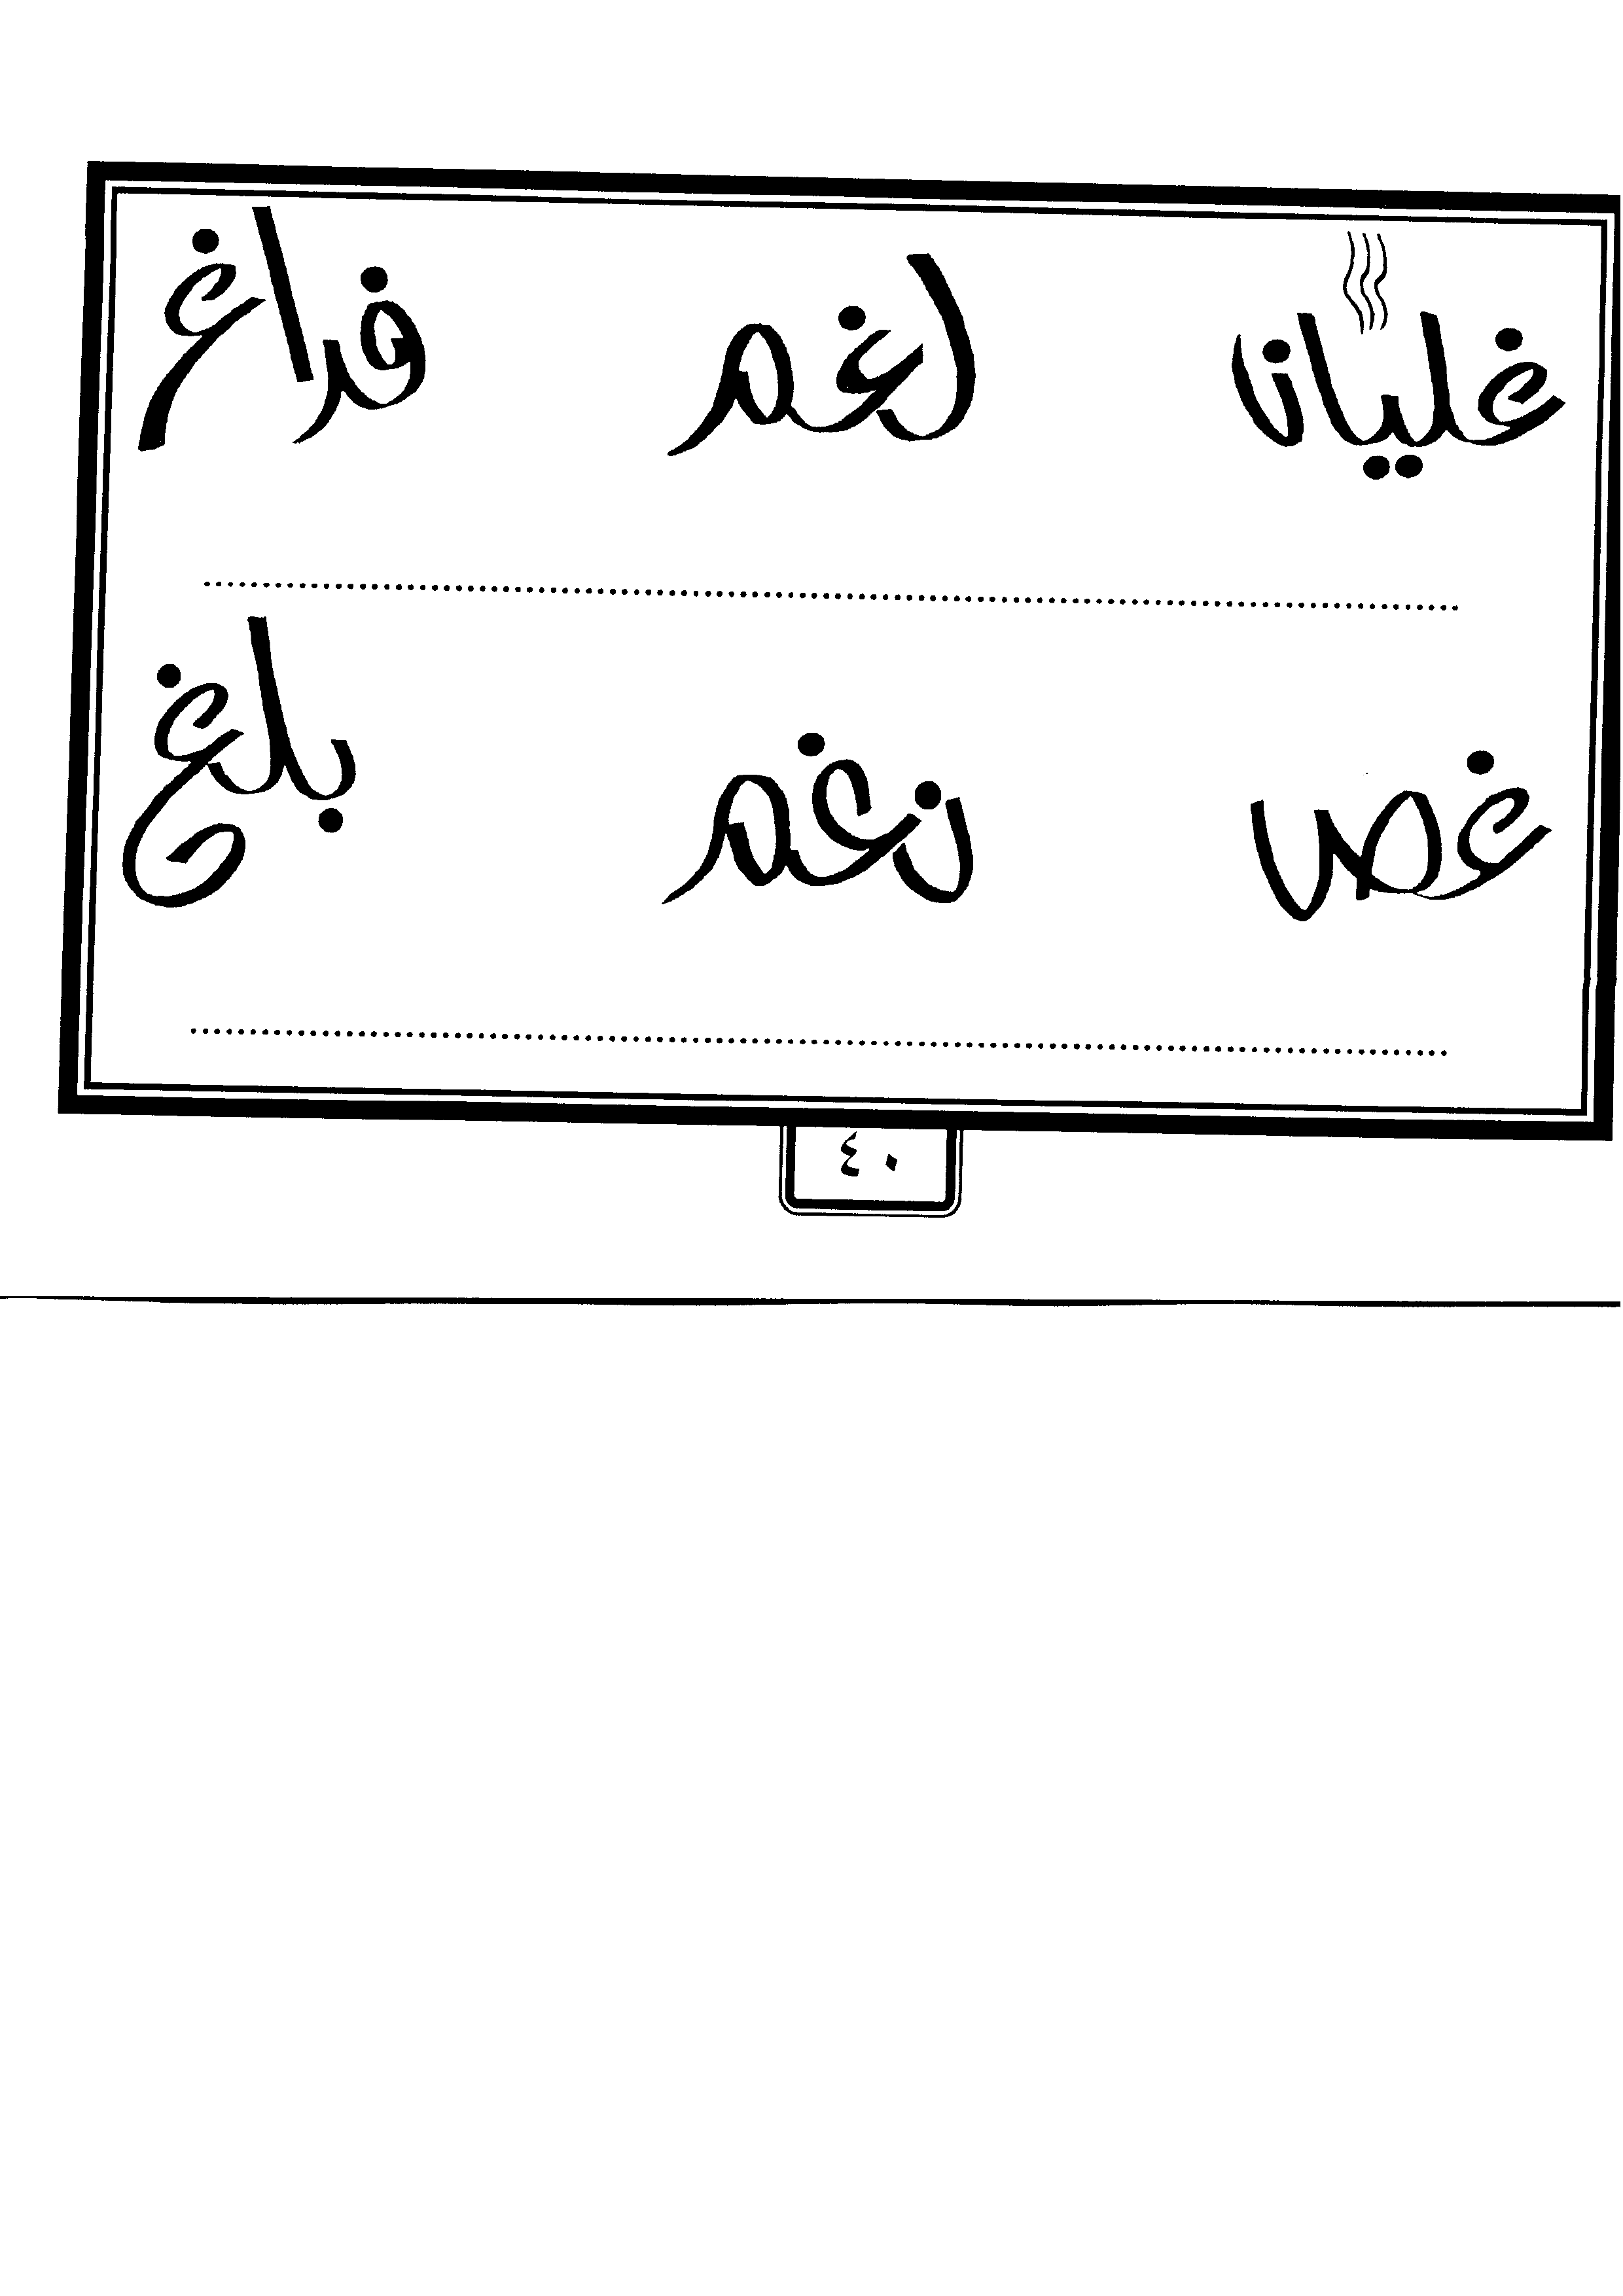 غليان لغم فراغ
غص نغم بلغ
٤٠